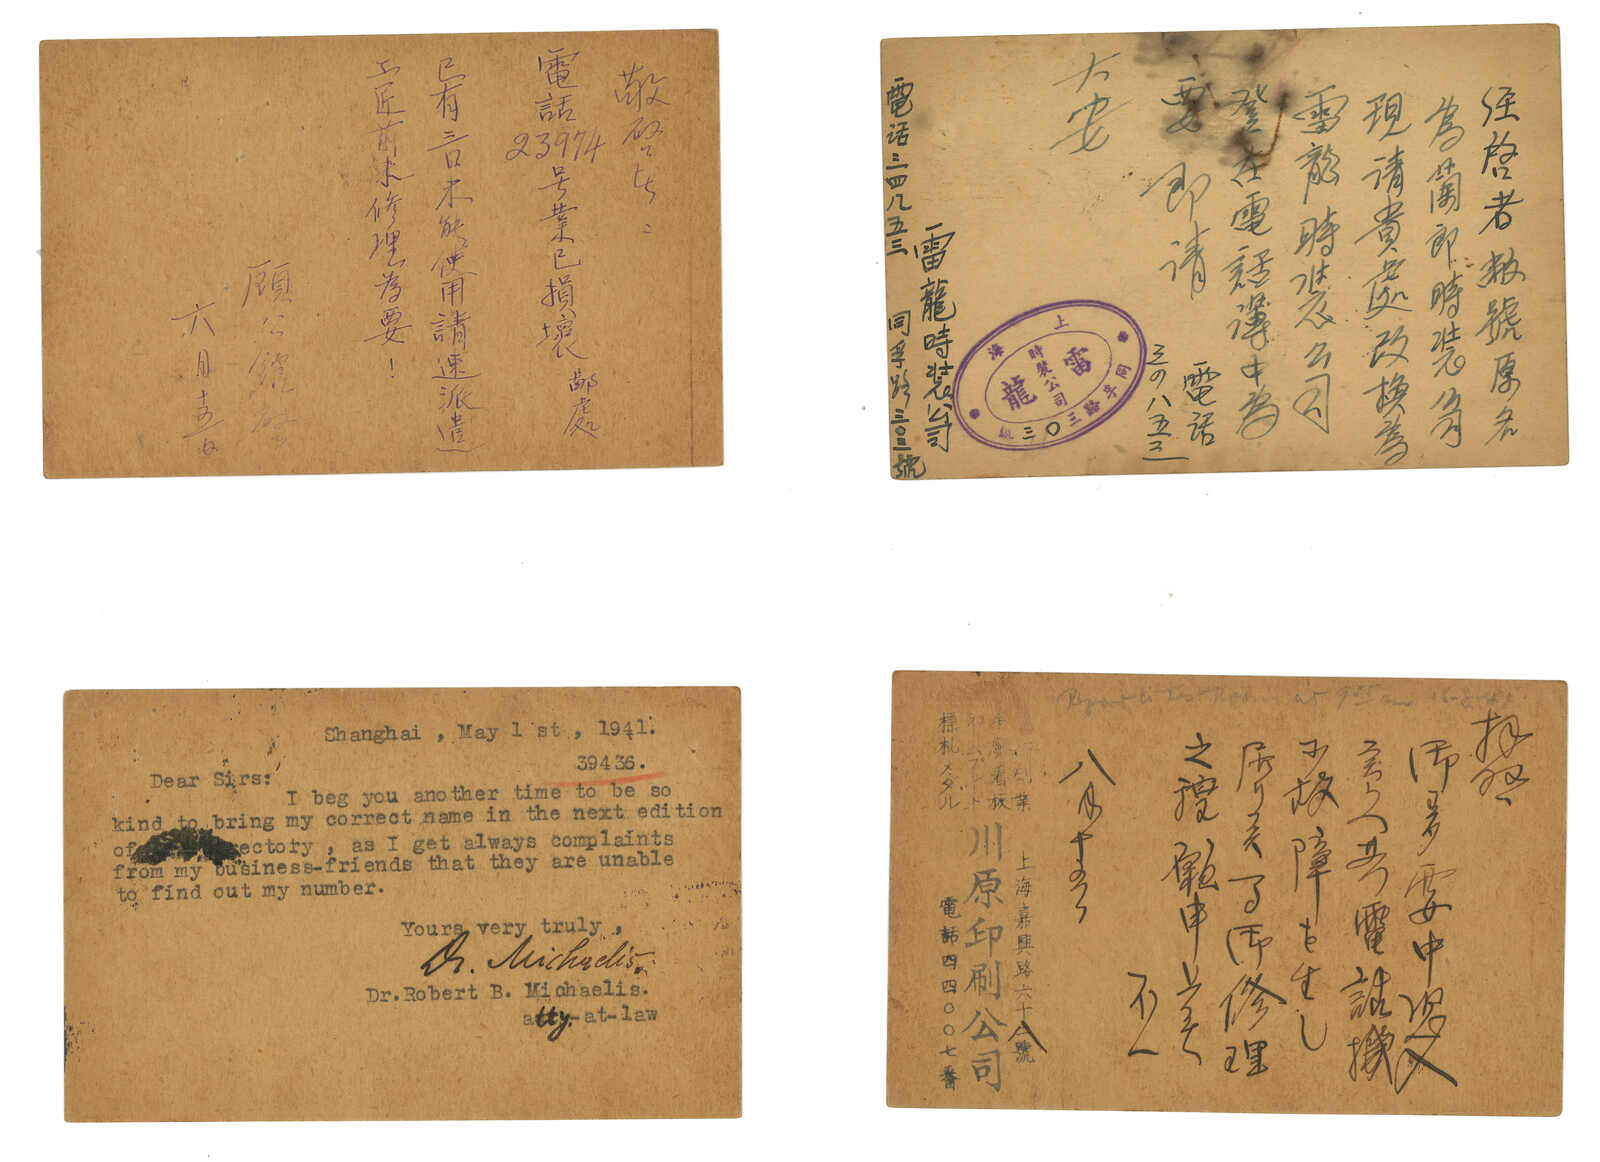 敬啓者：
電話
23974
号業已損壞
鄙處
已有三日不能使用請速派遣
工匠前來修理為要！
顧公
六月十五日
逕啓者敝號原名
為蘭郎時裝公司
現請貴處改換為
雷龍時裝公司
登在電話簿中為
要 即請
大安
電話
三四八五三
雷龍時裝公司
電話三四八五三 同孚路三〇三號
上海
雷龍
時裝公司
同孚路三〇三號
Shanghai , May 1 st , 1941.
39436.
Dear Sirs:
I beg you another time to be so
kind to bring my correct name in the next edition
of ectory , as I get always complaints
from my business-friends that they are unable
to find out my number.
Yours very truly ,
Dr. Michaelis.
Dr.Robert B. Michaelis.
atty-at-law
Report to Test Room at 9
拝啓
御多要中
電話機
故障を生し
居り 御修理
之程願申上
不一
八月十
上海嘉興路六十八號
川原印刷公司
標札メダル
電話四四〇〇七番